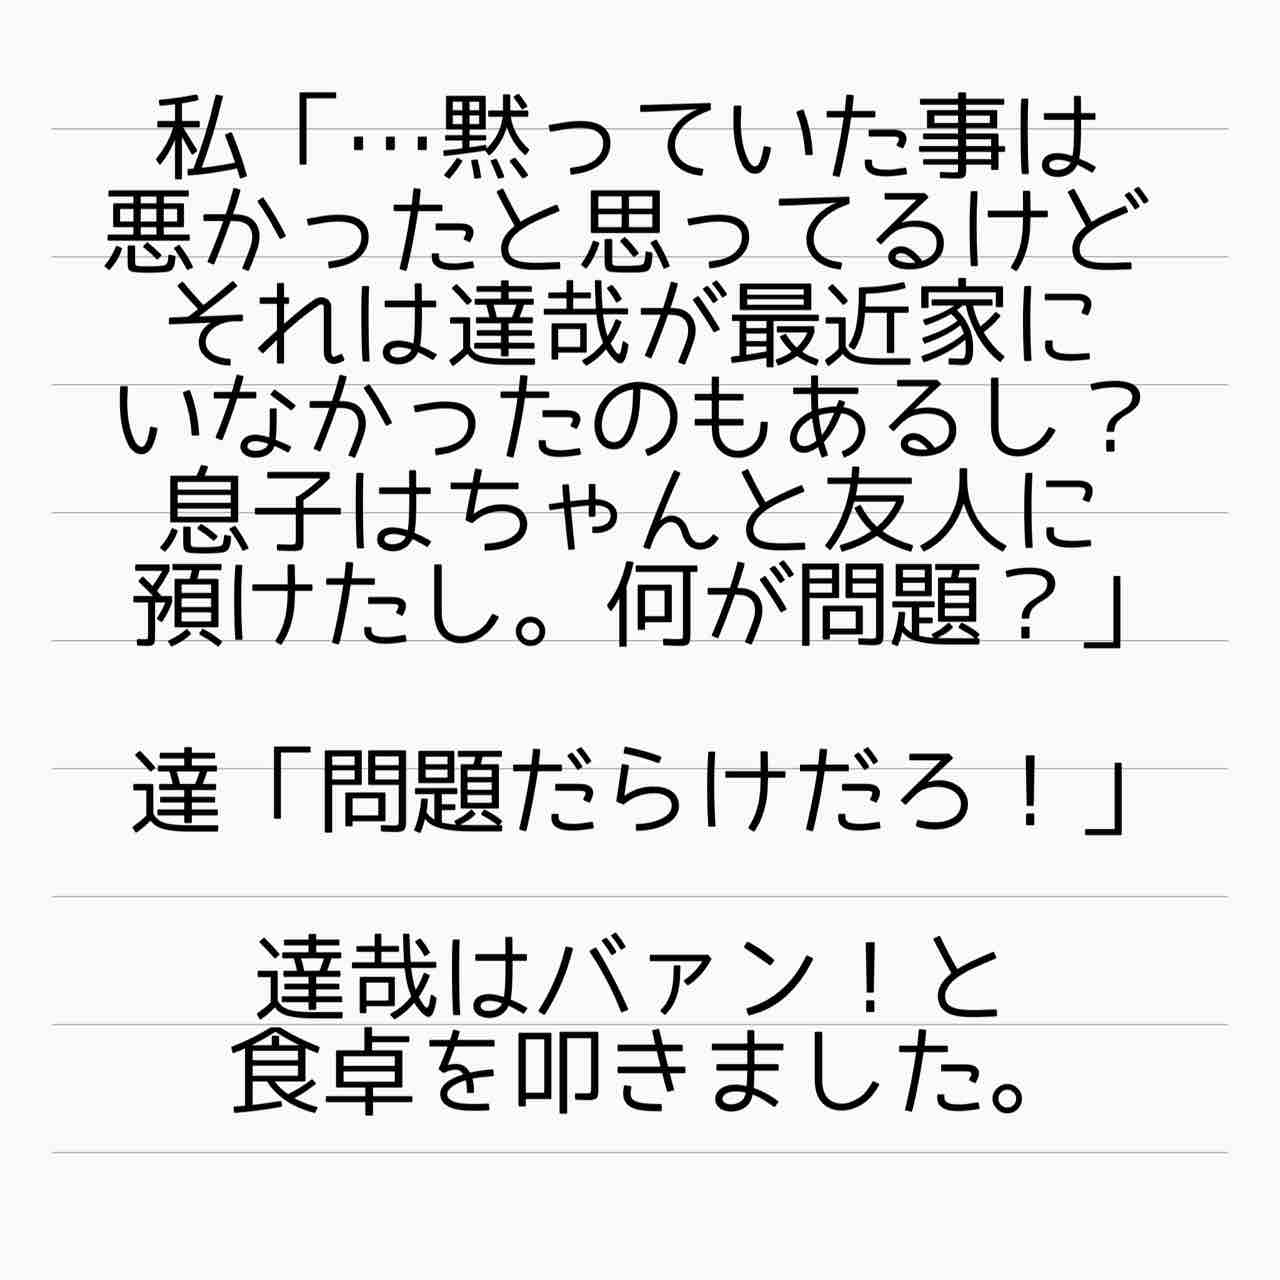 私「…黙っていた事は
悪かったと思ってるけど
それは達哉が最近家に
いなかったのもあるし？
息子はちゃんと友人に
預けたし。何が問題？」
達「問題だらけだろ！」
達哉はバァン！と
食卓を叩きました。